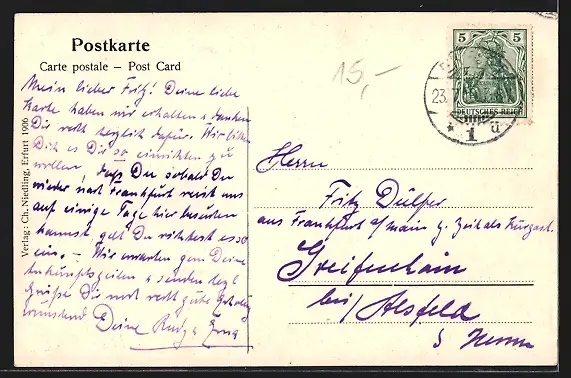 Postkarte
Carte postale – Post Card
Verlag: Ch. Niedling, Erfurt 1906
15,-
5 5
DEUTSCHES REICH
23.
* 1 ü
Mein lieber Fritz! Deine liebe
Karte haben wir erhalten & danken
Dir recht herzlich dafür. Wir bitten
Dich es Dir so einrichten zu
wollen, dass Du sobald Du
wieder nach Frankfurt reist uns
auf einige Tage hier besuchen
kannst, gell Du richtest es so
ein. – Wir erwarten gern Deine
Ankunftszeilen & senden herzl.
Grüße Dir noch recht gute Erholung
wünschend Deine
Herrn
Fritz Dülfer
aus Frankfurt a/Main z. Zeit als Kurgast.
Greifenhain
bei Alsfeld